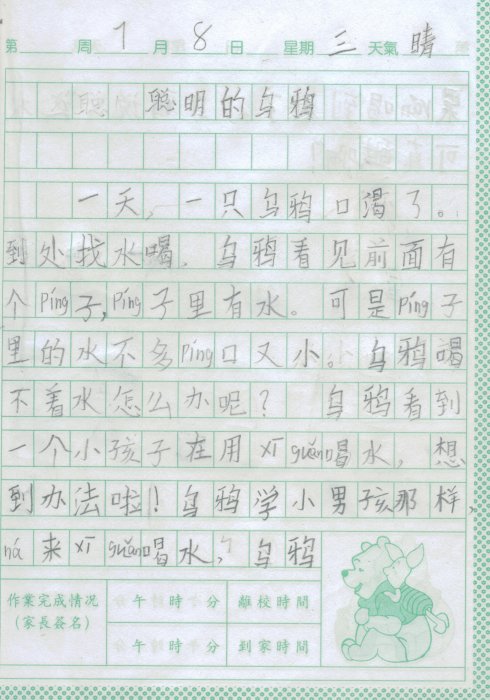 第 周 1 月 8 日 星期 三 天氣 晴
聪明的乌鸦
一天，一只乌鸦口渴了。
到处找水喝，乌鸦看见前面有
个píng子，píng子里有水。可是píng子
里的水不多píng口又小。乌鸦喝
不着水怎么办呢？乌鸦看到
一个小孩子在用xī guǎn喝水，想
到办法啦！乌鸦学小男孩那样，
ná来xī guǎn喝水，乌鸦
作業完成情况 午 時 分 離校時間
（家長簽名） 午 時 分 到家時間